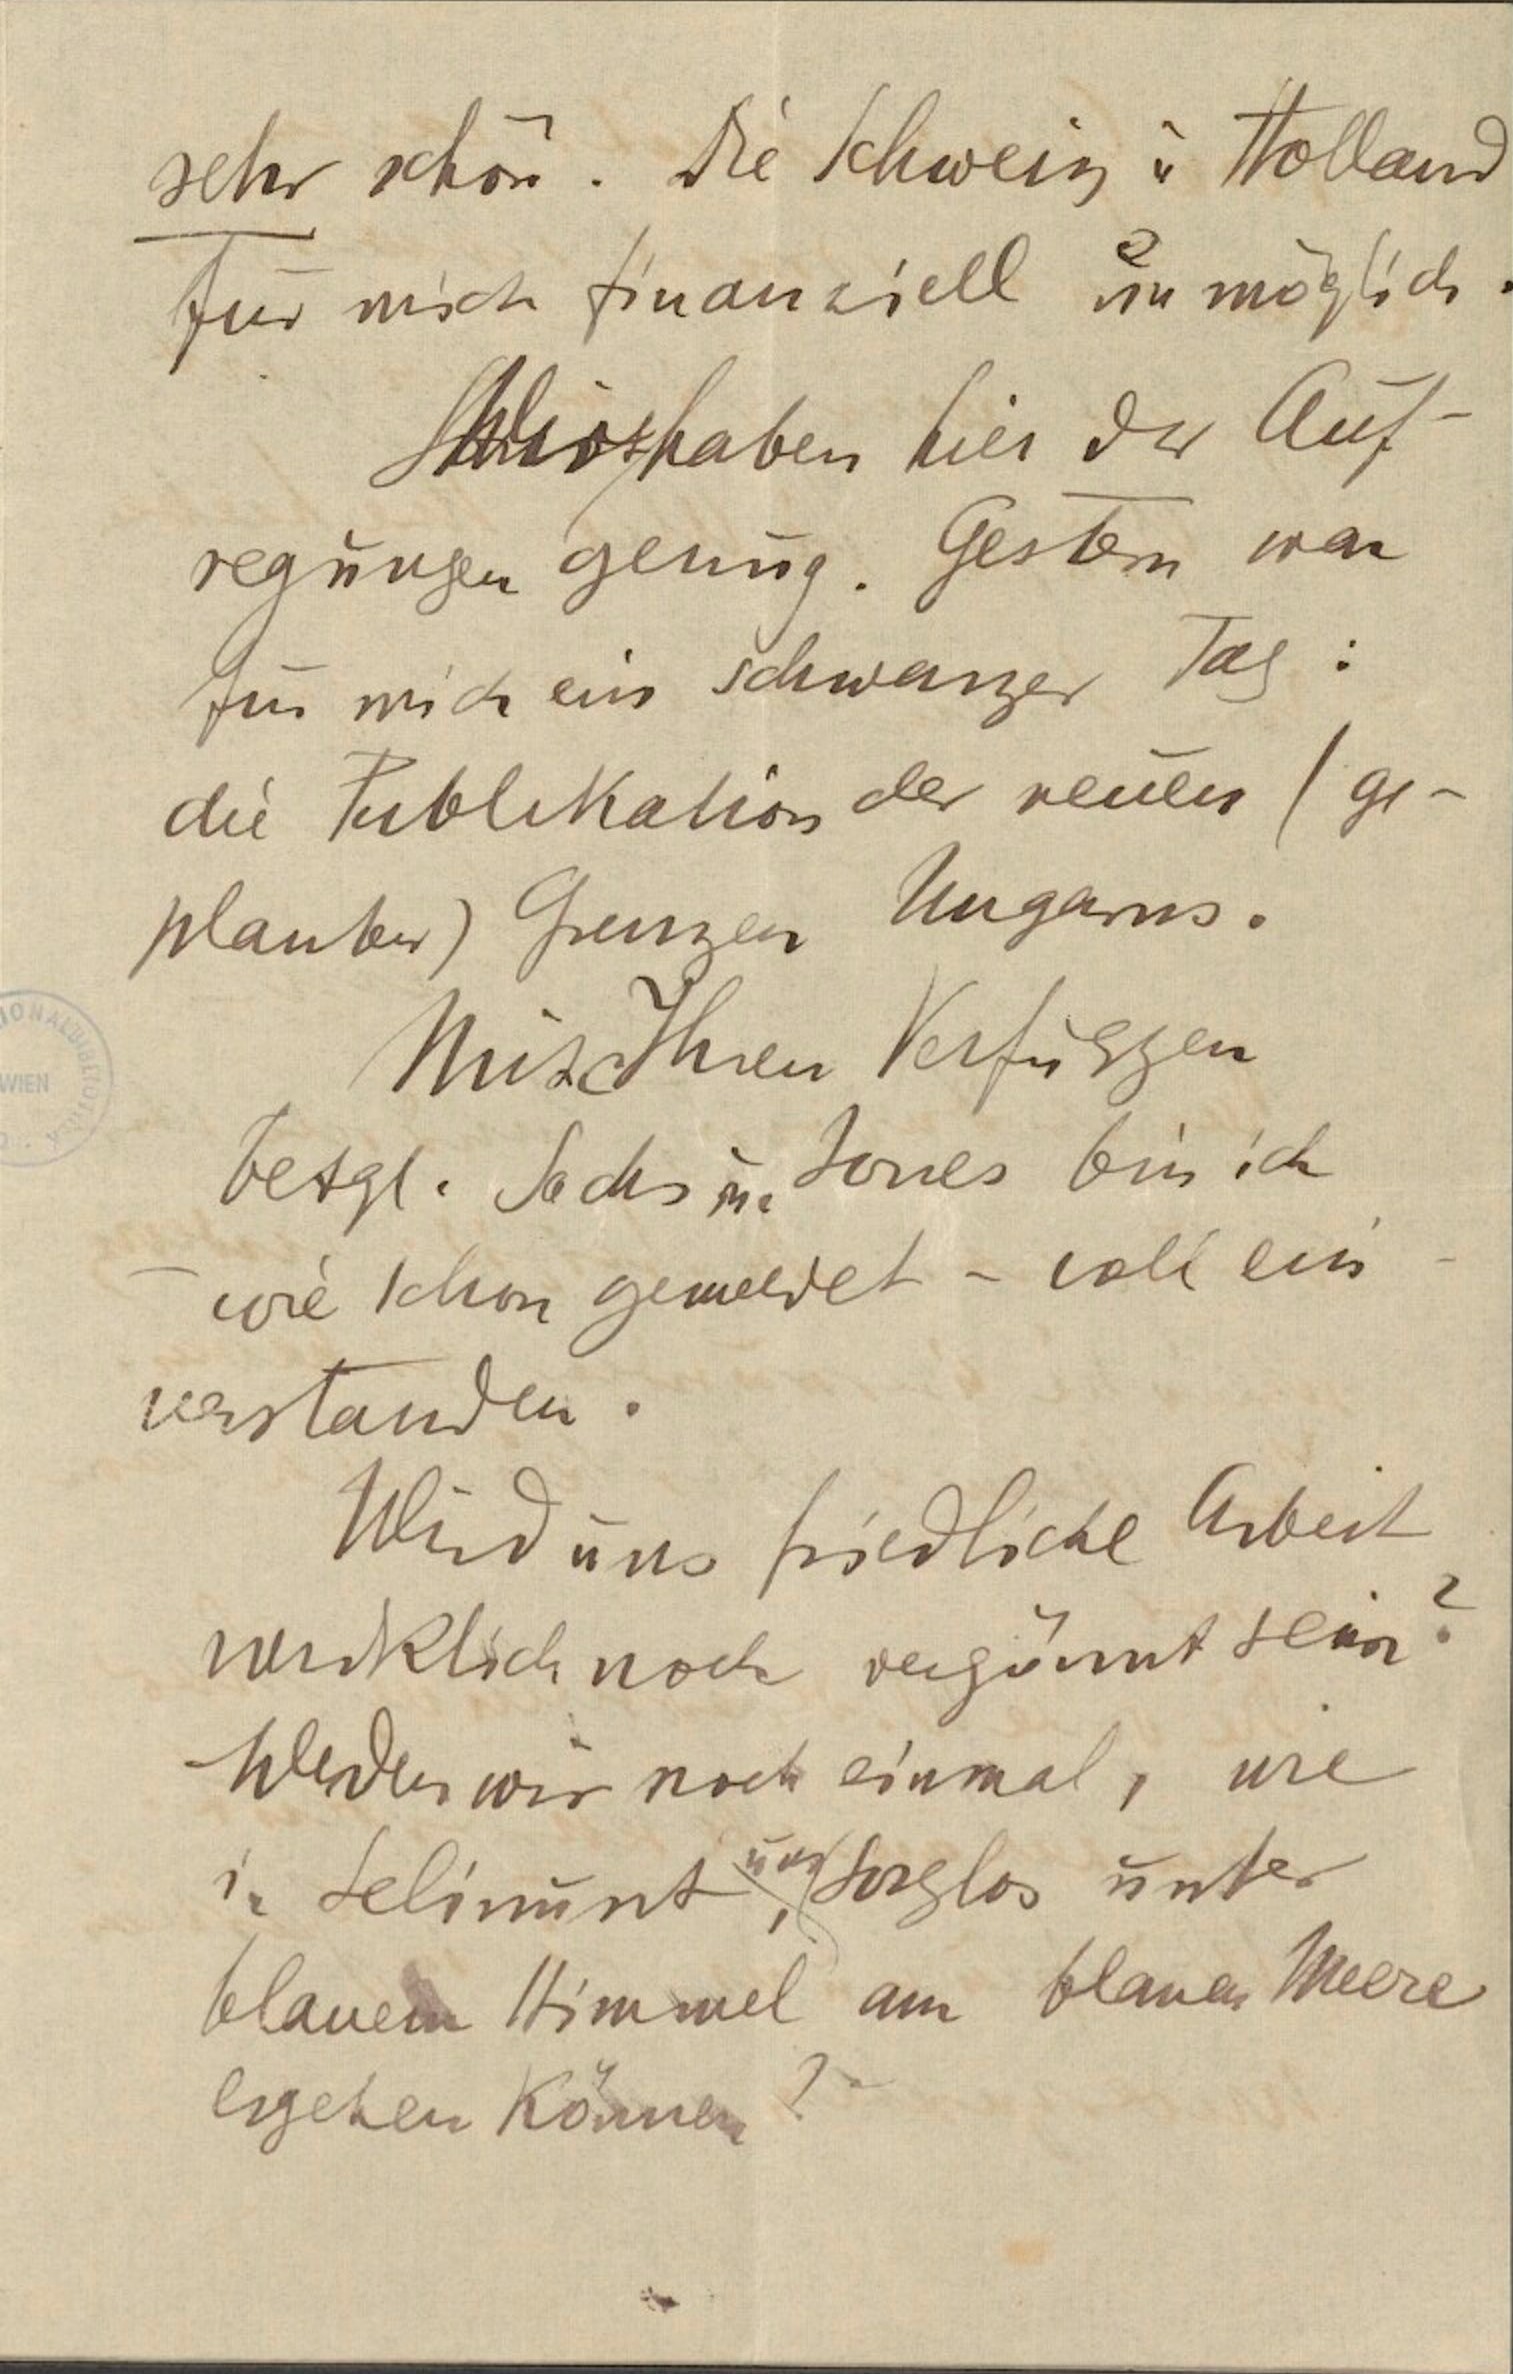 sehr schön. Die Schweiz u Holland
für mich finanziell unmöglich.
Wir haben hier der Auf-
regungen genug. Gestern war
für mich ein schwarzer Tag:
die Publikation der neuen (ge-
planten) Grenzen Ungarns.
Mit Ihren Verfügungen
bezgl. Sachs u. Jones bin ich
– wie schon gemeldet – voll ein-
verstanden.
Wird uns friedliche Arbeit
wirklich noch vergönnt sein?
Werden wir noch einmal, wie
in Selinunt, uns sorglos unter
blauem Himmel am blauen Meere
ergehen können? –
IONALBIBLIOTHEK
WIEN